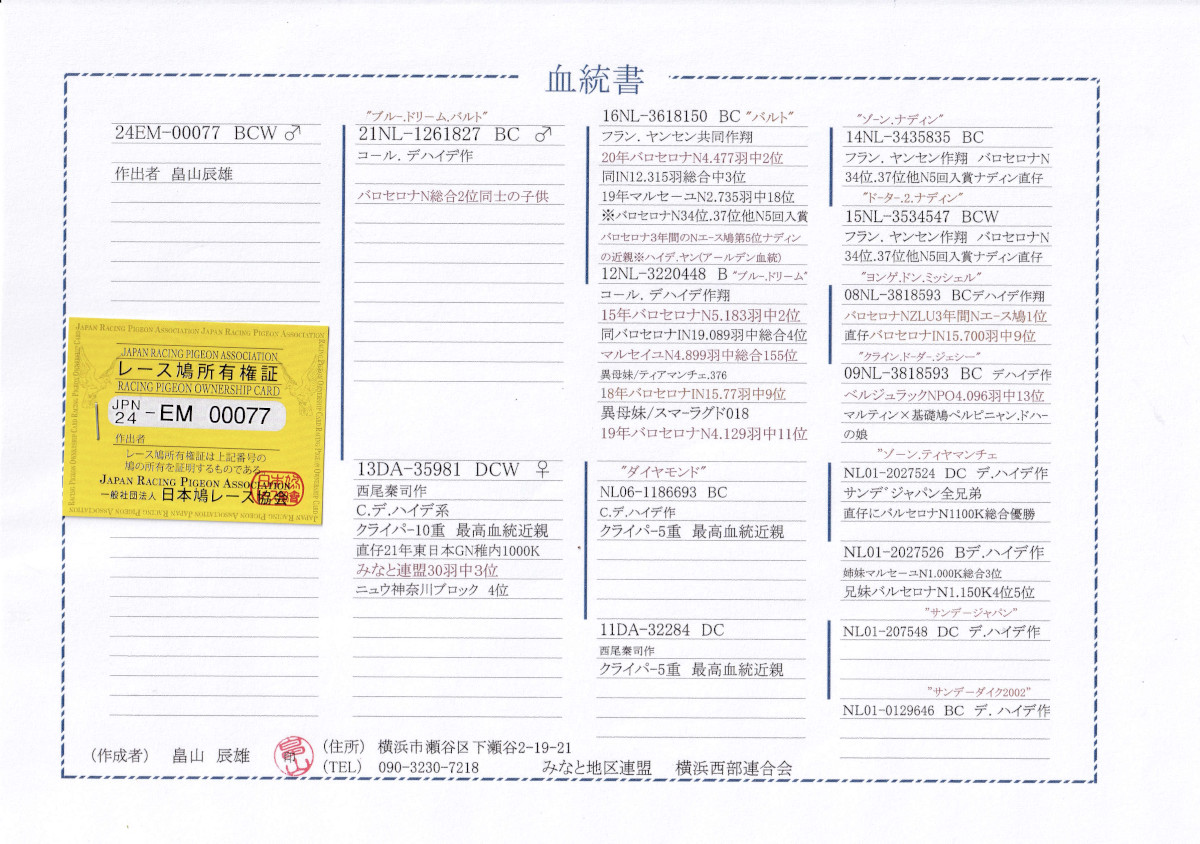 血統書
24EM-00077 BCW ♂
作出者 畠山辰雄
JAPAN RACING PIGEON ASSOCIATION JAPAN RACING PIGEON ASSOCIATION
JAPAN RACING PIGEON ASSOCIATION
レース鳩所有権証
RACING PIGEON OWNERSHIP CARD
JPN
24 - EM 00077
作出者
レース鳩所有権証は上記番号の
鳩の所有を証明するものである。
JAPAN RACING PIGEON ASSOCIATION
一般社団法人 日本鳩レース協会
"ブルー.ドリーム.バルト"
21NL-1261827 BC ♂
コール. デハイデ作
バロセロナN総合2位同士の子供
13DA-35981 DCW ♀
西尾秦司作
C.デ.ハイデ系
クライパー10重 最高血統近親
直仔21年東日本GN稚内1000K
みなと連盟30羽中3位
ニュウ神奈川ブロック 4位
16NL-3618150 BC "バルト"
フラン. ヤンセン共同作翔
20年バロセロナN4.477羽中2位
同IN12.315羽総合中3位
19年マルセーユN2.735羽中18位
※バロセロナN34位.37位他N5回入賞
バロセロナ3年間のNエース鳩第5位ナディン
の近親※ハイデ.ヤン(アールデン血統)
12NL-3220448 B "ブルー.ドリーム"
コール. デハイデ作翔
15年バロセロナN5.183羽中2位
同バロセロナIN19.089羽中総合4位
マルセイユN4.899羽中総合155位
異母妹/ティアマンチェ.376
18年バロセロナIN15.77羽中9位
異母妹/スマーラグド018
19年バロセロナN4.129羽中11位
"ダイヤモンド"
NL06-1186693 BC
C.デ.ハイデ作
クライパー5重 最高血統近親
11DA-32284 DC
西尾秦司作
クライパー5重 最高血統近親
"ゾーン.ナディン"
14NL-3435835 BC
フラン. ヤンセン作翔 バロセロナN
34位.37位他N5回入賞ナディン直仔
"ドーター.2.ナディン"
15NL-3534547 BCW
フラン. ヤンセン作翔 バロセロナN
34位.37位他N5回入賞ナディン直仔
"ヨンゲ.ドン.ミッシェル"
08NL-3818593 BCデハイデ作翔
バロセロナNZLU3年間Nエース鳩1位
直仔バロセロナIN15.700羽中9位
"クライン.ドーダー.ジェシー"
09NL-3818593 BC デハイデ作
ベルジュラックNPO4.096羽中13位
マルティン×基礎鳩ペルピニャン.ドハー
の娘
"ゾーン.ティヤマンチェ
NL01-2027524 DC デ.ハイデ作
サンデジャパン全兄弟
直仔にバルセロナN1100K総合優勝
NL01-2027526 Bデ.ハイデ作
姉妹マルセーユN1.000K総合3位
兄妹バルセロナN1.150K4位5位
"サンデージャパン"
NL01-207548 DC デ.ハイデ作
"サンデーダイク2002"
NL01-0129646 BC デ. ハイデ作
(作成者) 畠山 辰雄
(住所) 横浜市瀬谷区下瀬谷2-19-21
(TEL) 090-3230-7218 みなと地区連盟 横浜西部連合会